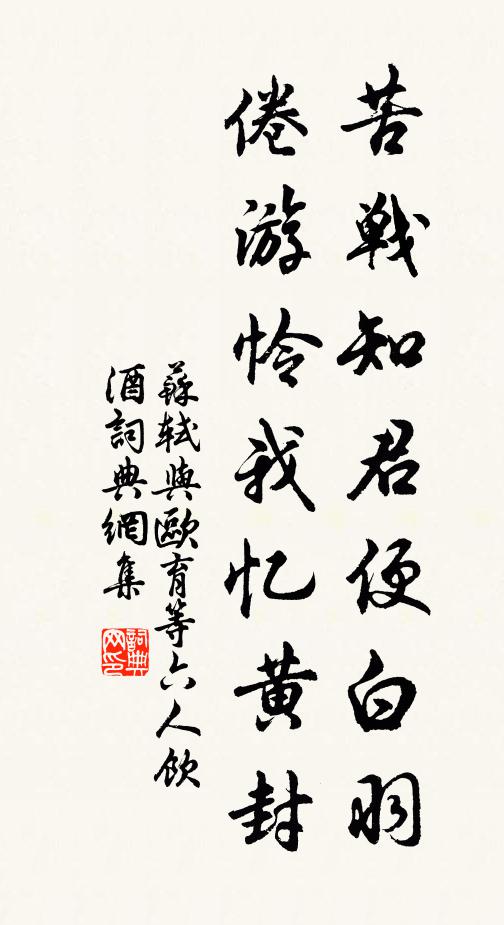 苦戦知君便白羽
倦游怜我忆黄封
蘇軾與歐育等六人飲
酒詞典網集
詞典
网印